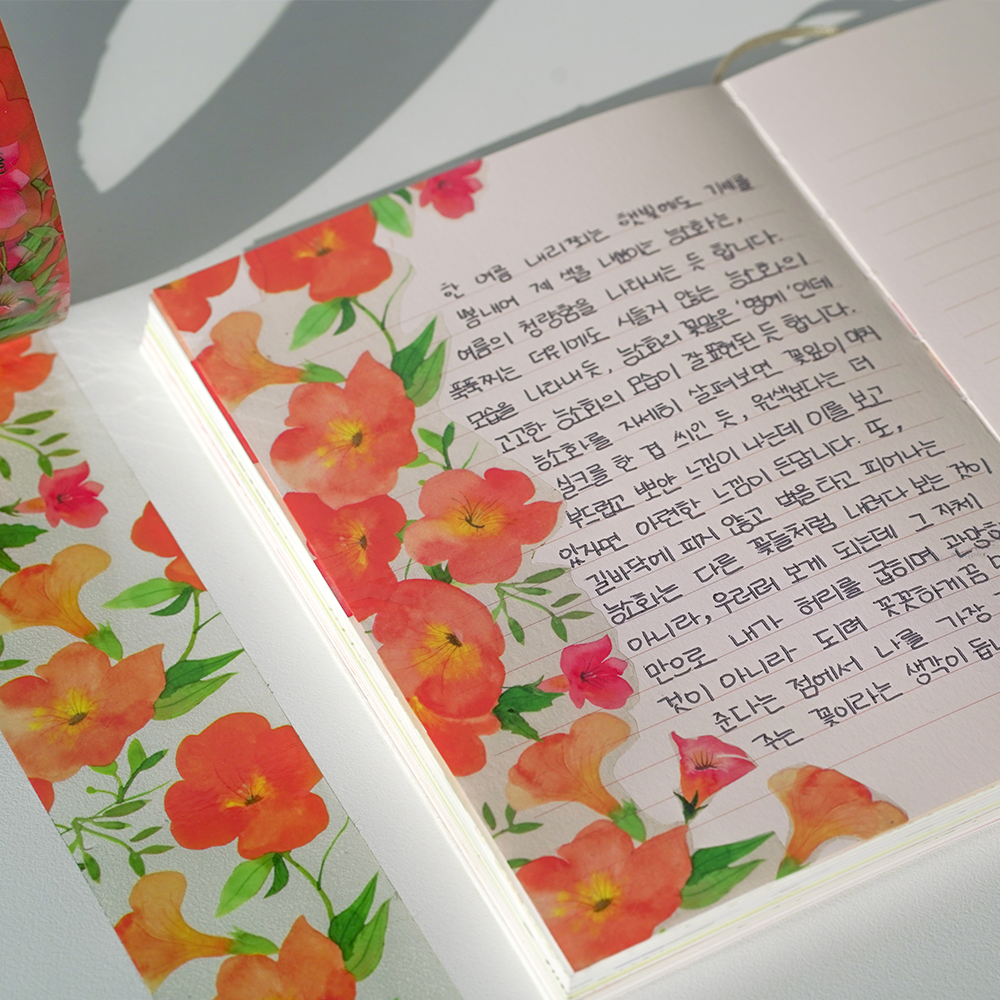 한 여름 내리쬐는 햇빛에도 기세를
뽐내어 제 색을 내보이는 능소화는,
여름의 청량함을 나타내는 듯 합니다.
푹푹찌는 더위에도 시들지 않는 능소화의
모습을 나타내듯, 능소화의 꽃말은 '명예'인데
고고한 능소화의 모습이 잘 표현된 듯 합니다.
능소화를 자세히 살펴보면 꽃잎이 마치
실크를 한 겹 씌인 듯, 원색보다는 더
부드럽고 뽀얀 느낌이 나는데 이를 보고
있자면 아련한 느낌이 든답니다. 또,
길바닥에 피지 않고 벽을 타고 피어나는
능소화는 다른 꽃들처럼 내려다 보는 것이
아니라, 우러러 보게 되는데 그 자체
만으로 내가 허리를 굽히며 관망하
것이 아니라 되려 꼿꼿하게끔
준다는 점에서 나를 가장
주는 꽃이라는 생각이 듭니